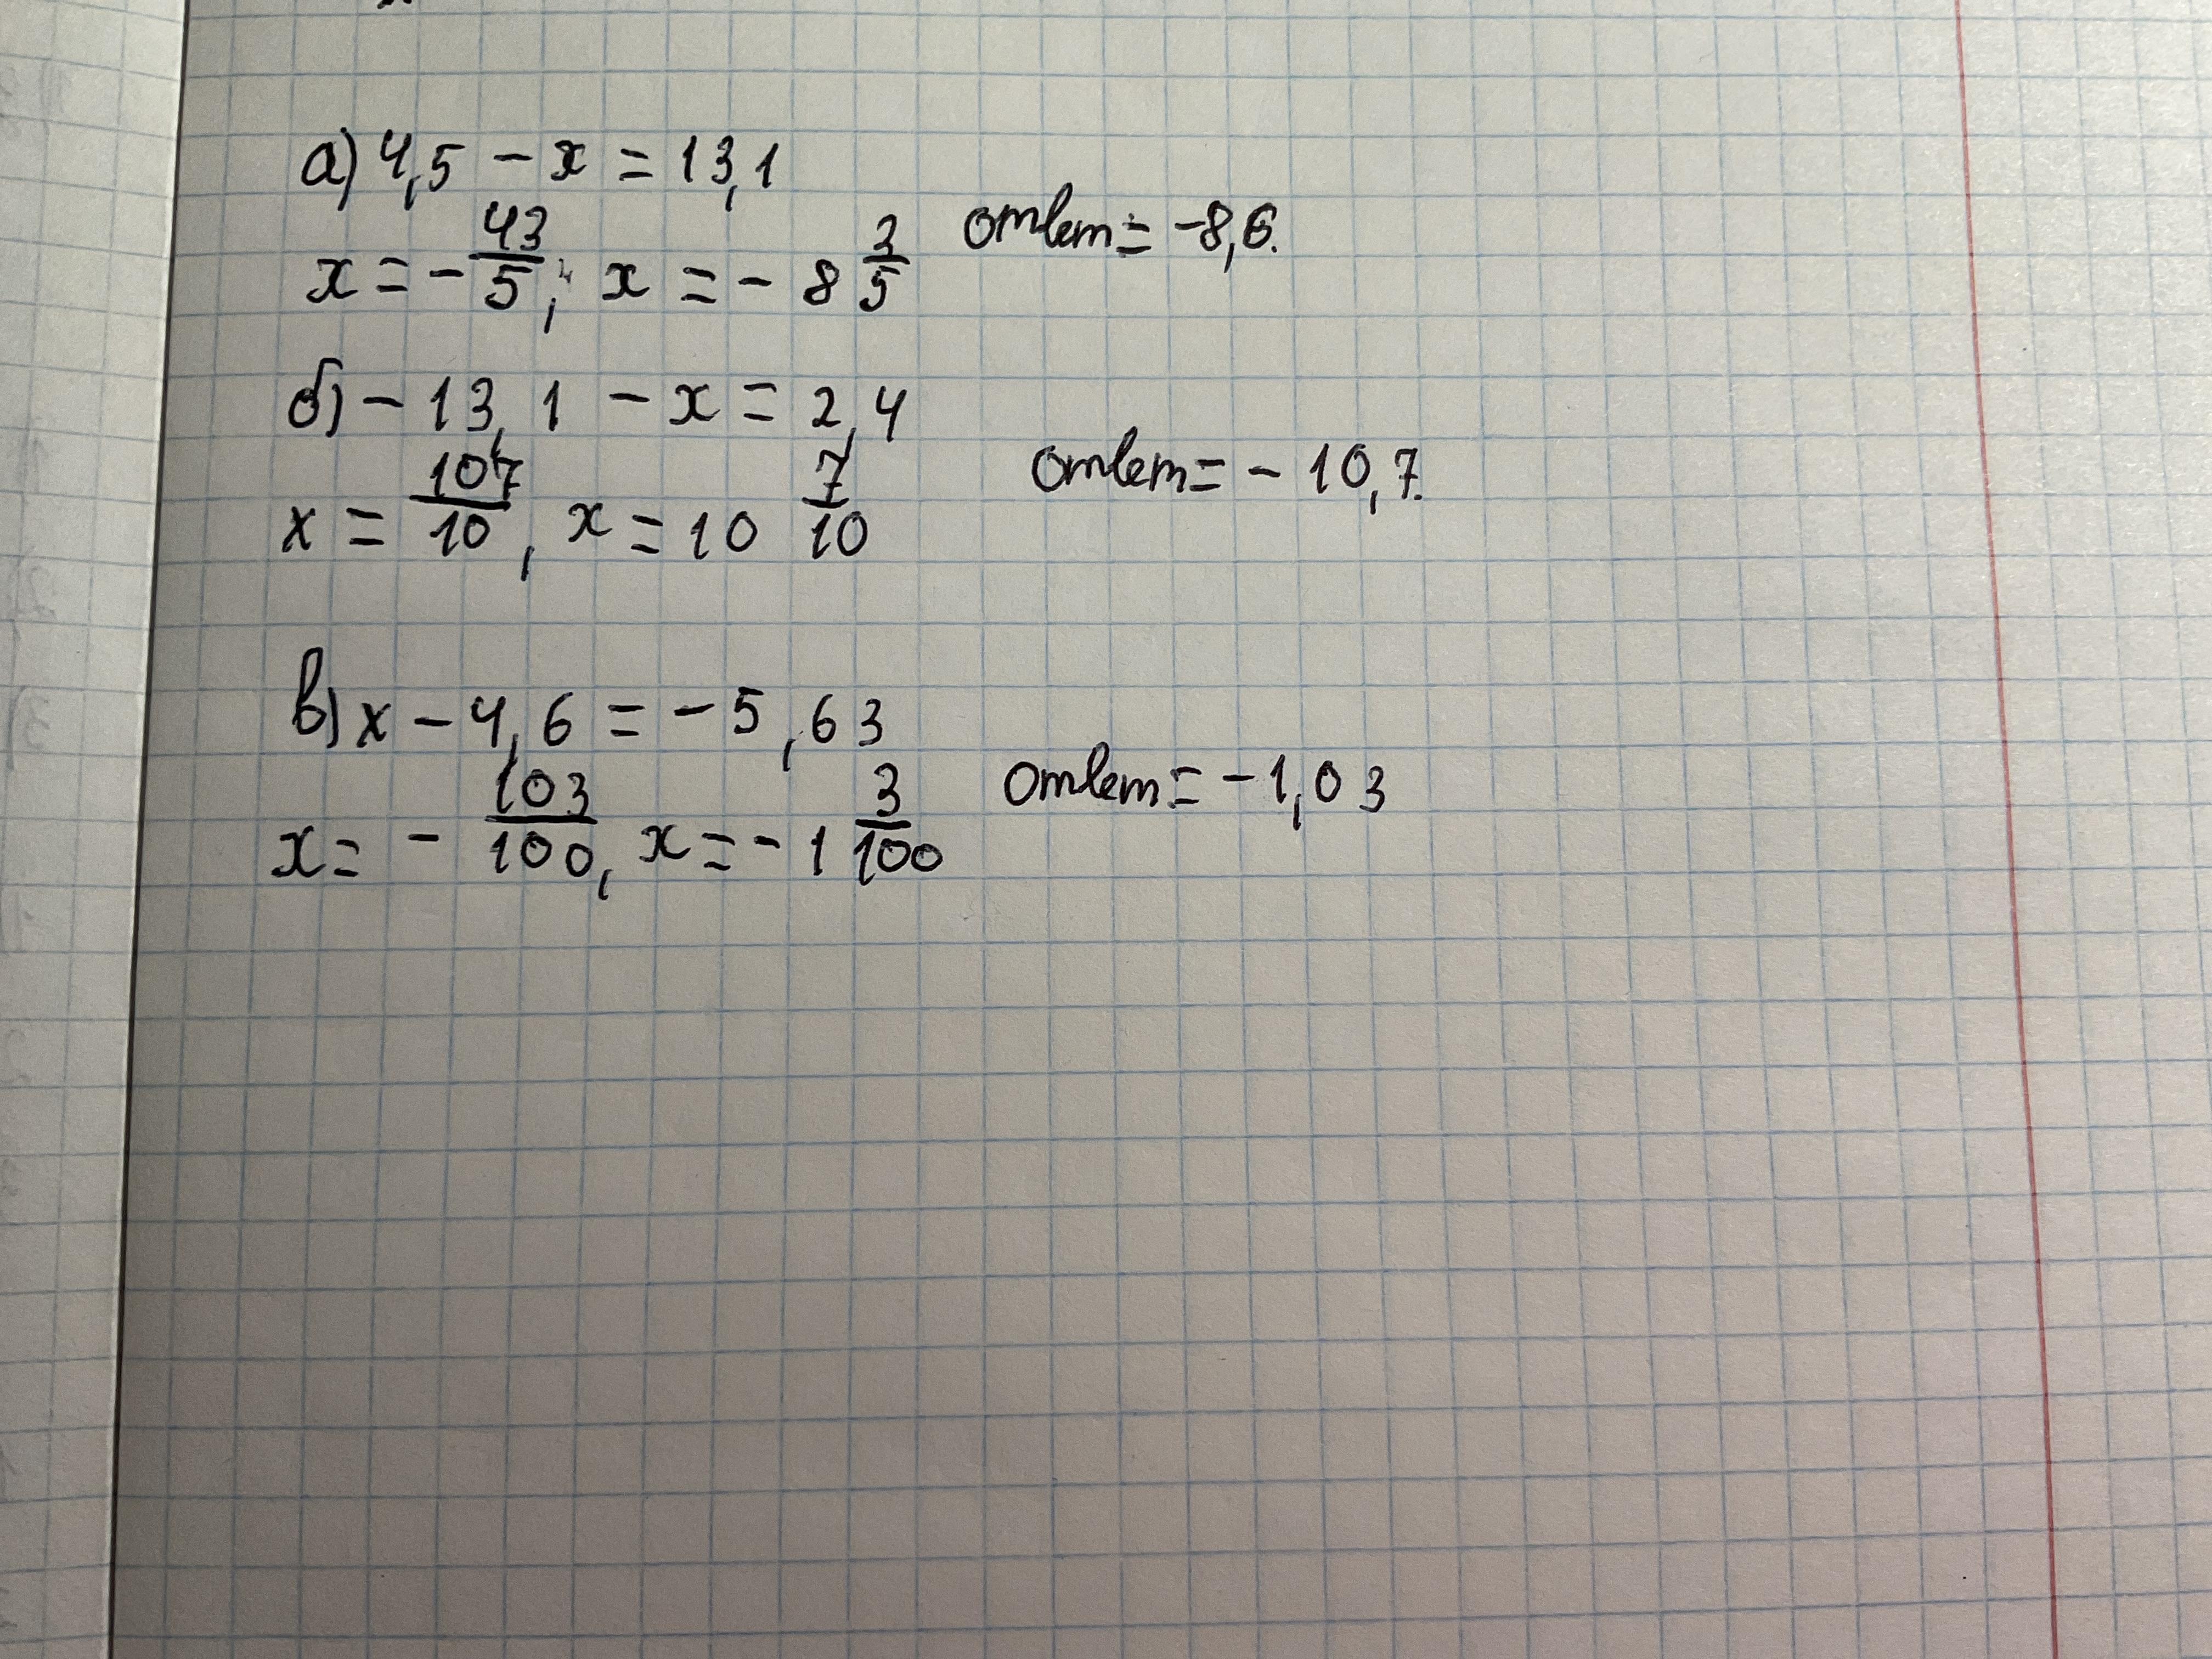 а) 4,5 - x = 13,1
x = - 43/5; x = - 8 3/5 ответ = -8,6.
б) - 13,1 - x = 2,4
x = 107/10, x = 10 7/10 ответ = - 10,7.
в) x - 4,6 = - 5,63
x = - 103/100, x = - 1 3/100 ответ = - 1,03